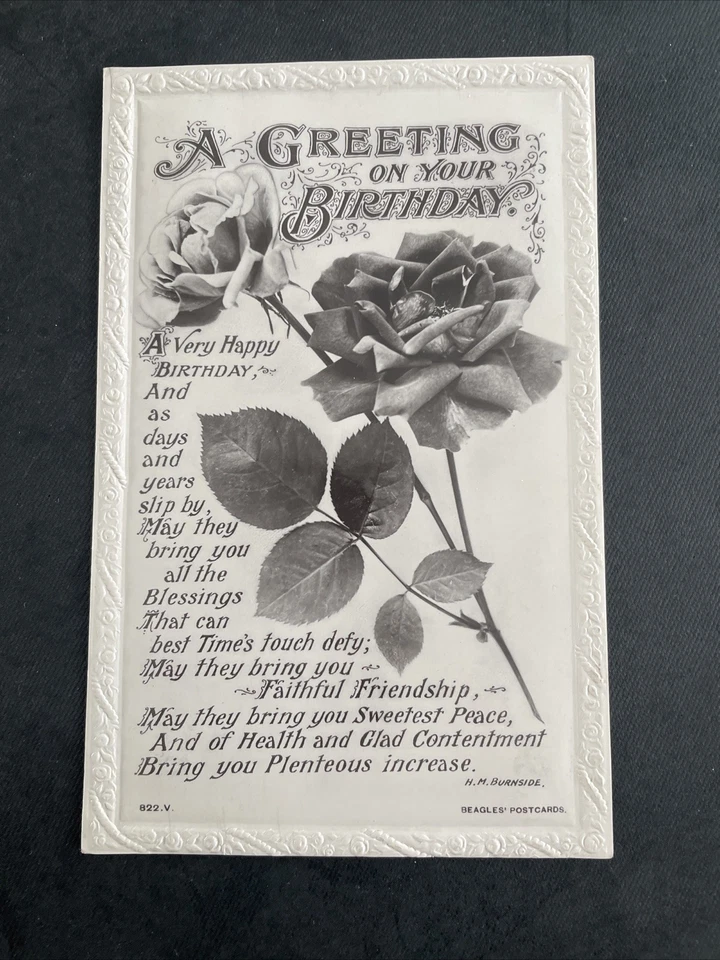 A GREETING
ON YOUR
BIRTHDAY.
A Very Happy
BIRTHDAY,
And
as
days
and
years
slip by,
May they
bring you
all the
Blessings
That can
best Time's touch defy;
May they bring you
Faithful Friendship,
May they bring you Sweetest Peace,
And of Health and Glad Contentment
Bring you Plenteous increase.
H.M. BURNSIDE.
822.V.
BEAGLES' POSTCARDS.